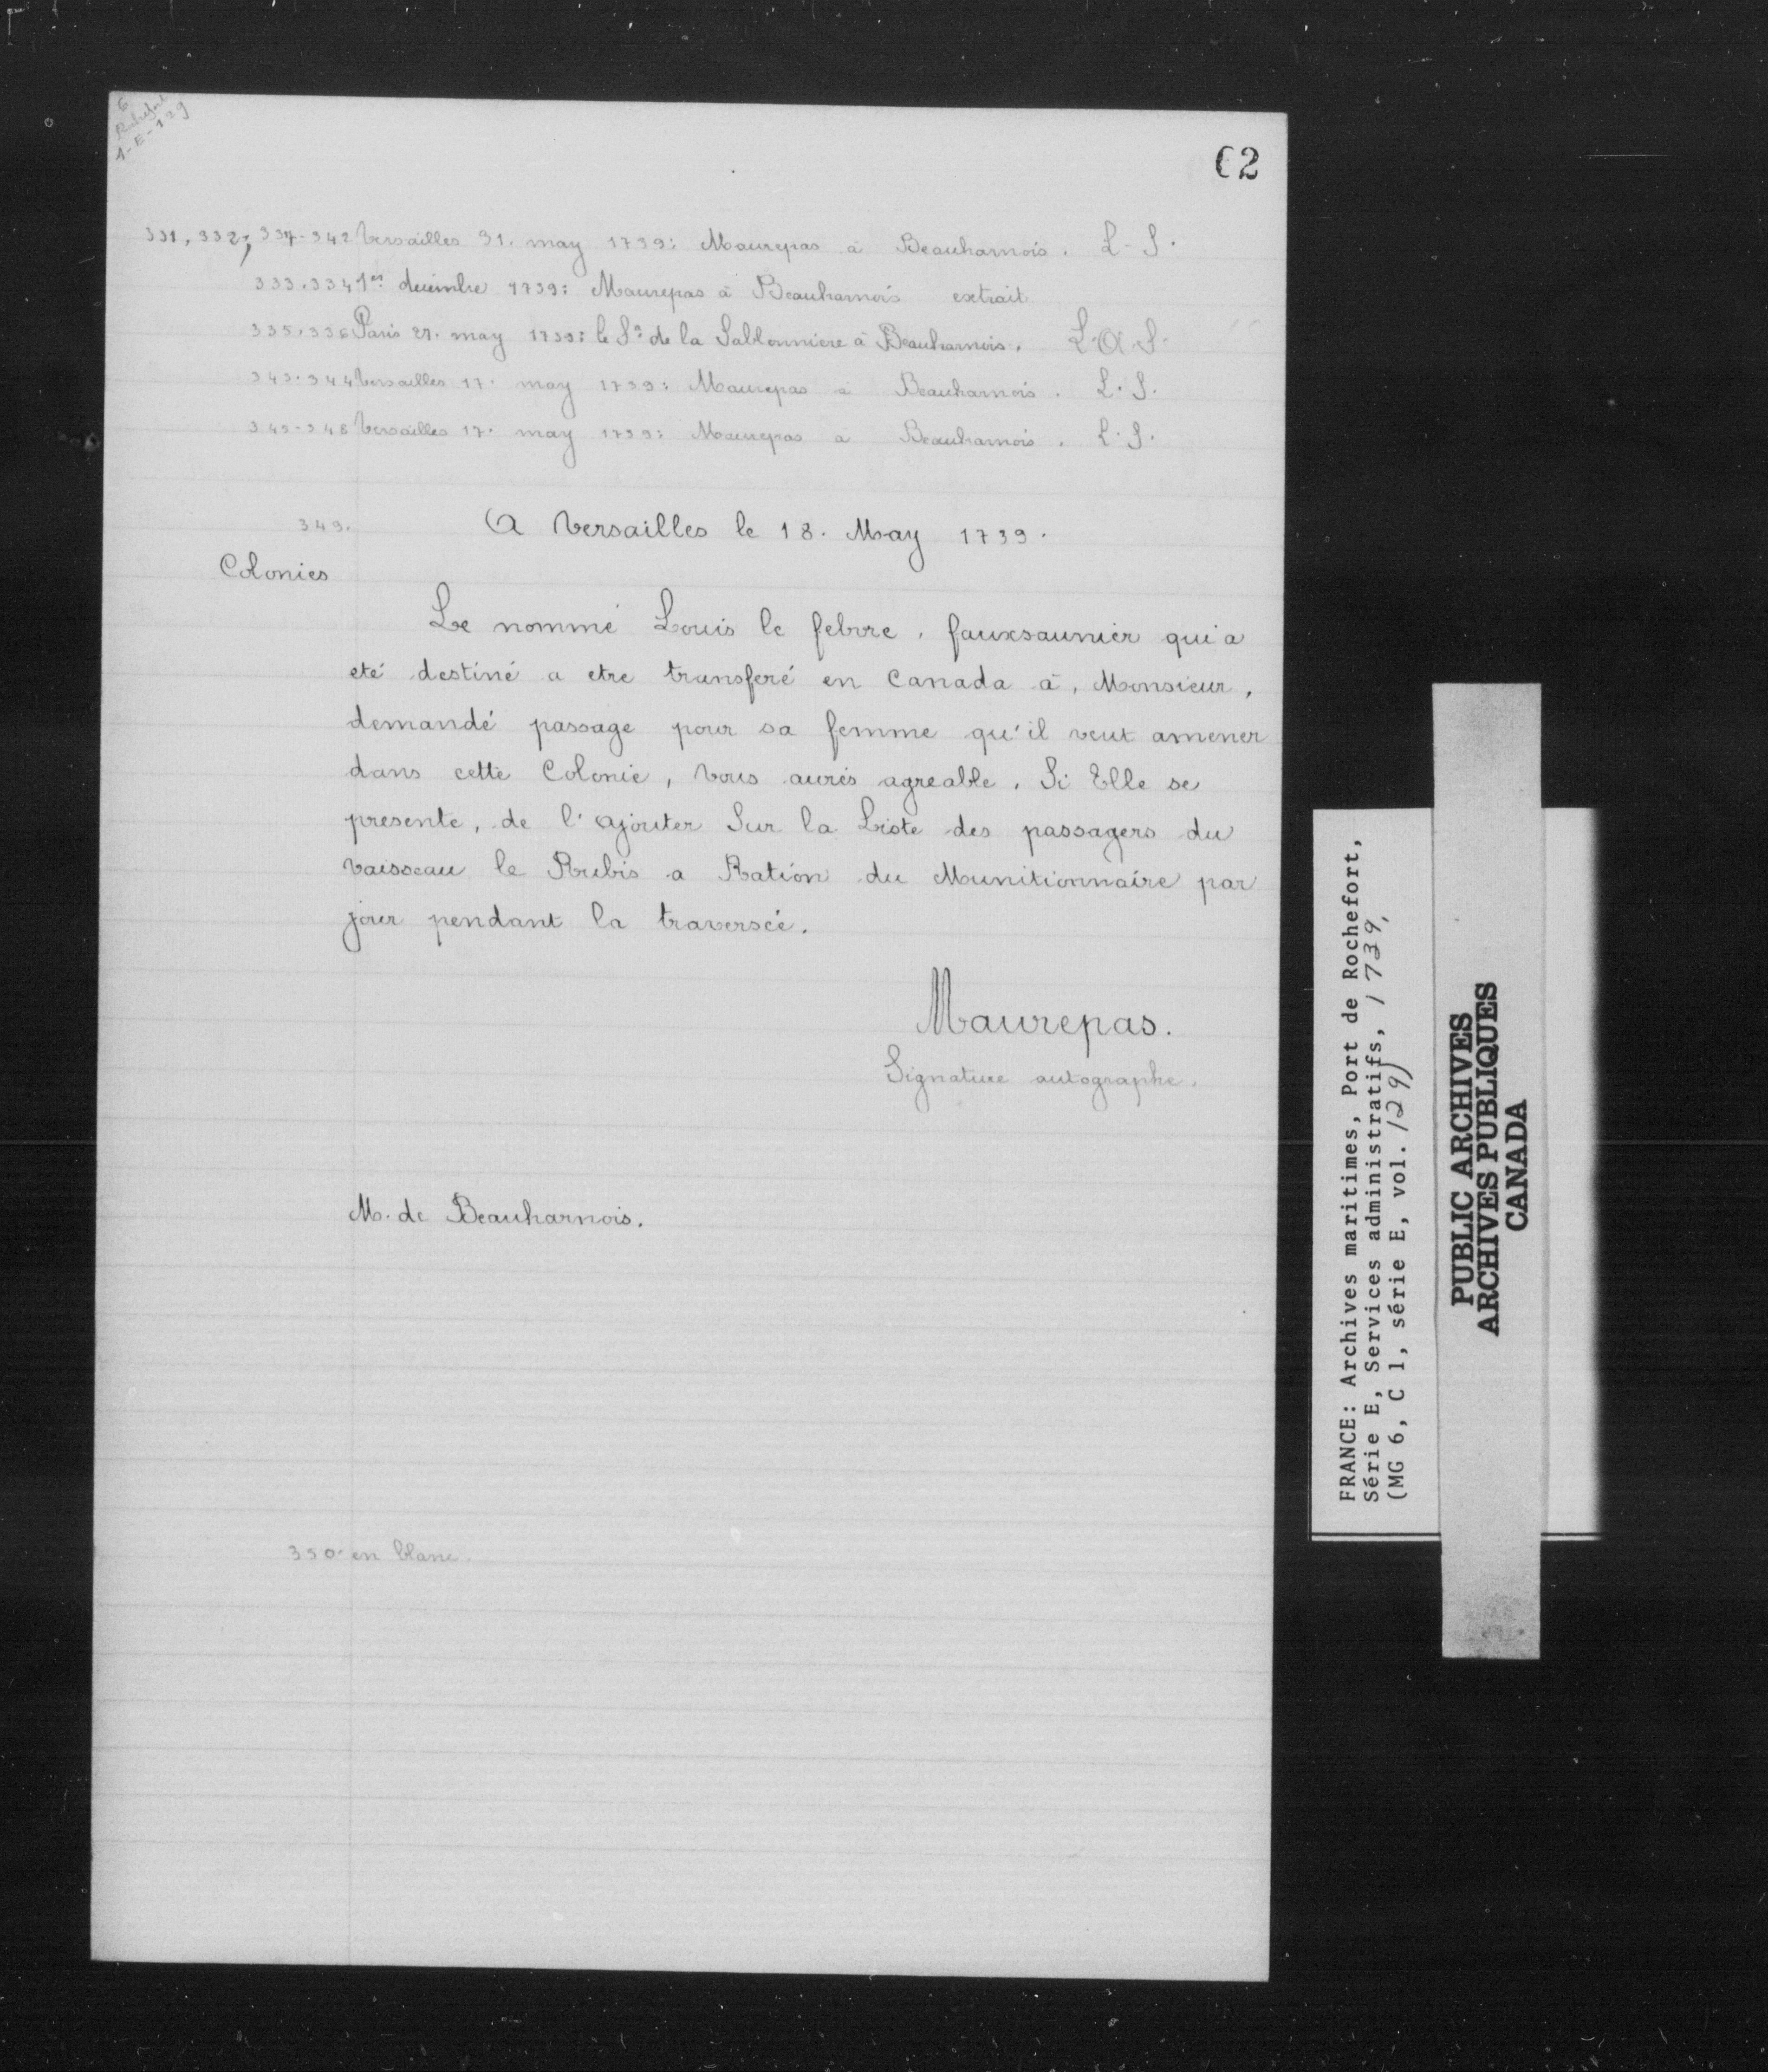 6
Rochefort
1-E-129
62
331, 332; 337-342 Versailles 31. may 1739: Maurepas à Beauharnois. L-S.
333.334 1er decembre 1739: Maurepas à Beauharnois extrait
335.336 Paris 27. may 1739: le Sr de la Sablonniere à Beauharnois. L.A.S.
343.344 Versailles 17. may 1739: Maurepas a Beauharnois. L.S.
345-348 Versailles 17. may 1739: Maurepas a Beauharnois. L.S.
349. A Versailles le 18. May 1739.
Colonies
Le nommé Louis le febvre, fauxsaunier qui a
eté destiné a etre transferé en Canada à, Monsieur,
demandé passage pour sa femme qu'il veut amener
dans cette Colonie, Vous aurés agreable, Si Elle se
presente, de l'ajouter Sur la Liste des passagers du
Vaisseau le Rubis a Ration du Munitionnaire par
jour pendant la traversée.
Maurepas.
Signature autographe.
M. de Beauharnois.
350. en blanc.
FRANCE: Archives maritimes, Port de Rochefort,
Série E, Services administratifs, 1739,
(MG 6, C 1, série E, vol. 129)
PUBLIC ARCHIVES
ARCHIVES PUBLIQUES
CANADA